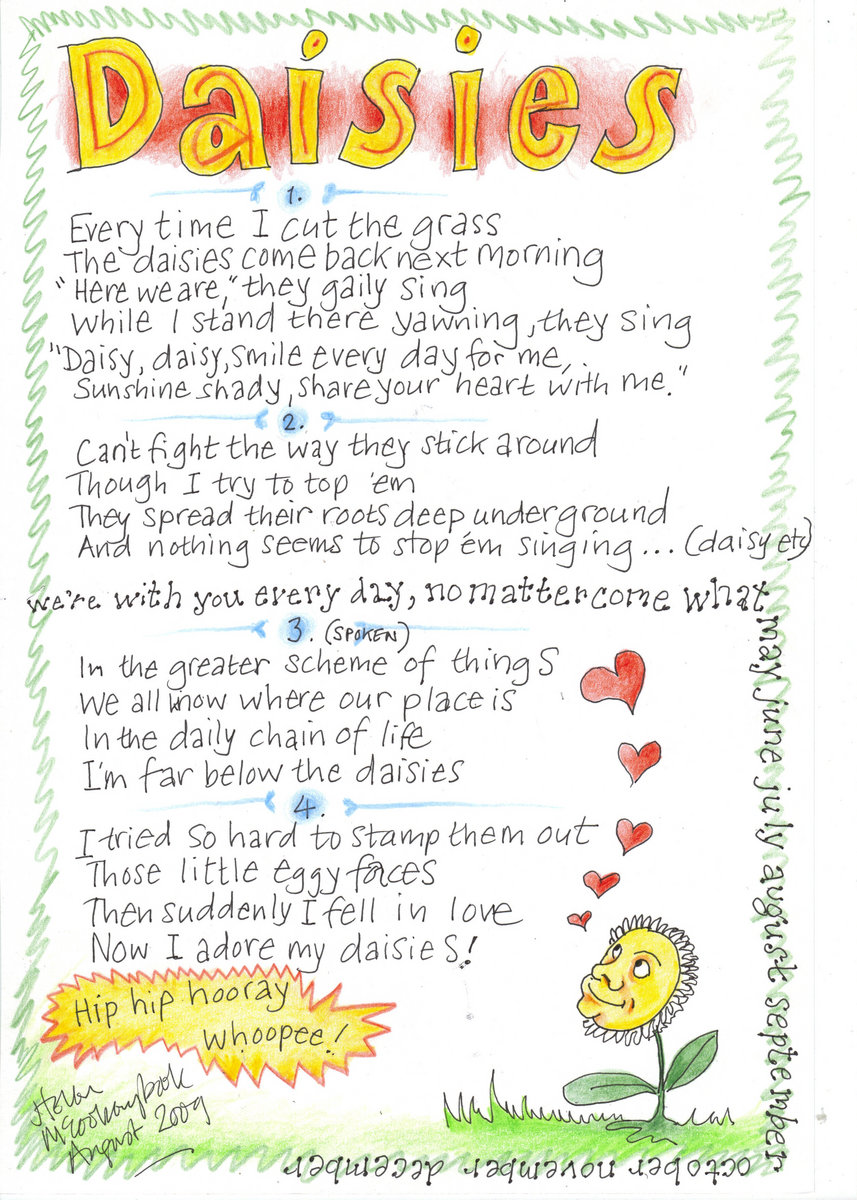 Daisies
1.
Every time I cut the grass
The daisies come back next morning
"Here we are," they gaily sing
While I stand there yawning, they sing
"Daisy, daisy, smile every day for me,
Sunshine shady, share your heart with me."
2.
Can't fight the way they stick around
Though I try to top 'em
They spread their roots deep underground
And nothing seems to stop 'em singing... (daisy etc)
we're with you every day, no matter come what
may june july august september
october november december
3. (SPOKEN)
In the greater scheme of things
We all know where our place is
In the daily chain of life
I'm far below the daisies
4.
I tried so hard to stamp them out
Those little eggy faces
Then suddenly I fell in love
Now I adore my daisies!
Hip hip hooray
whoopee!
Helen
McCookerybook
August 2009